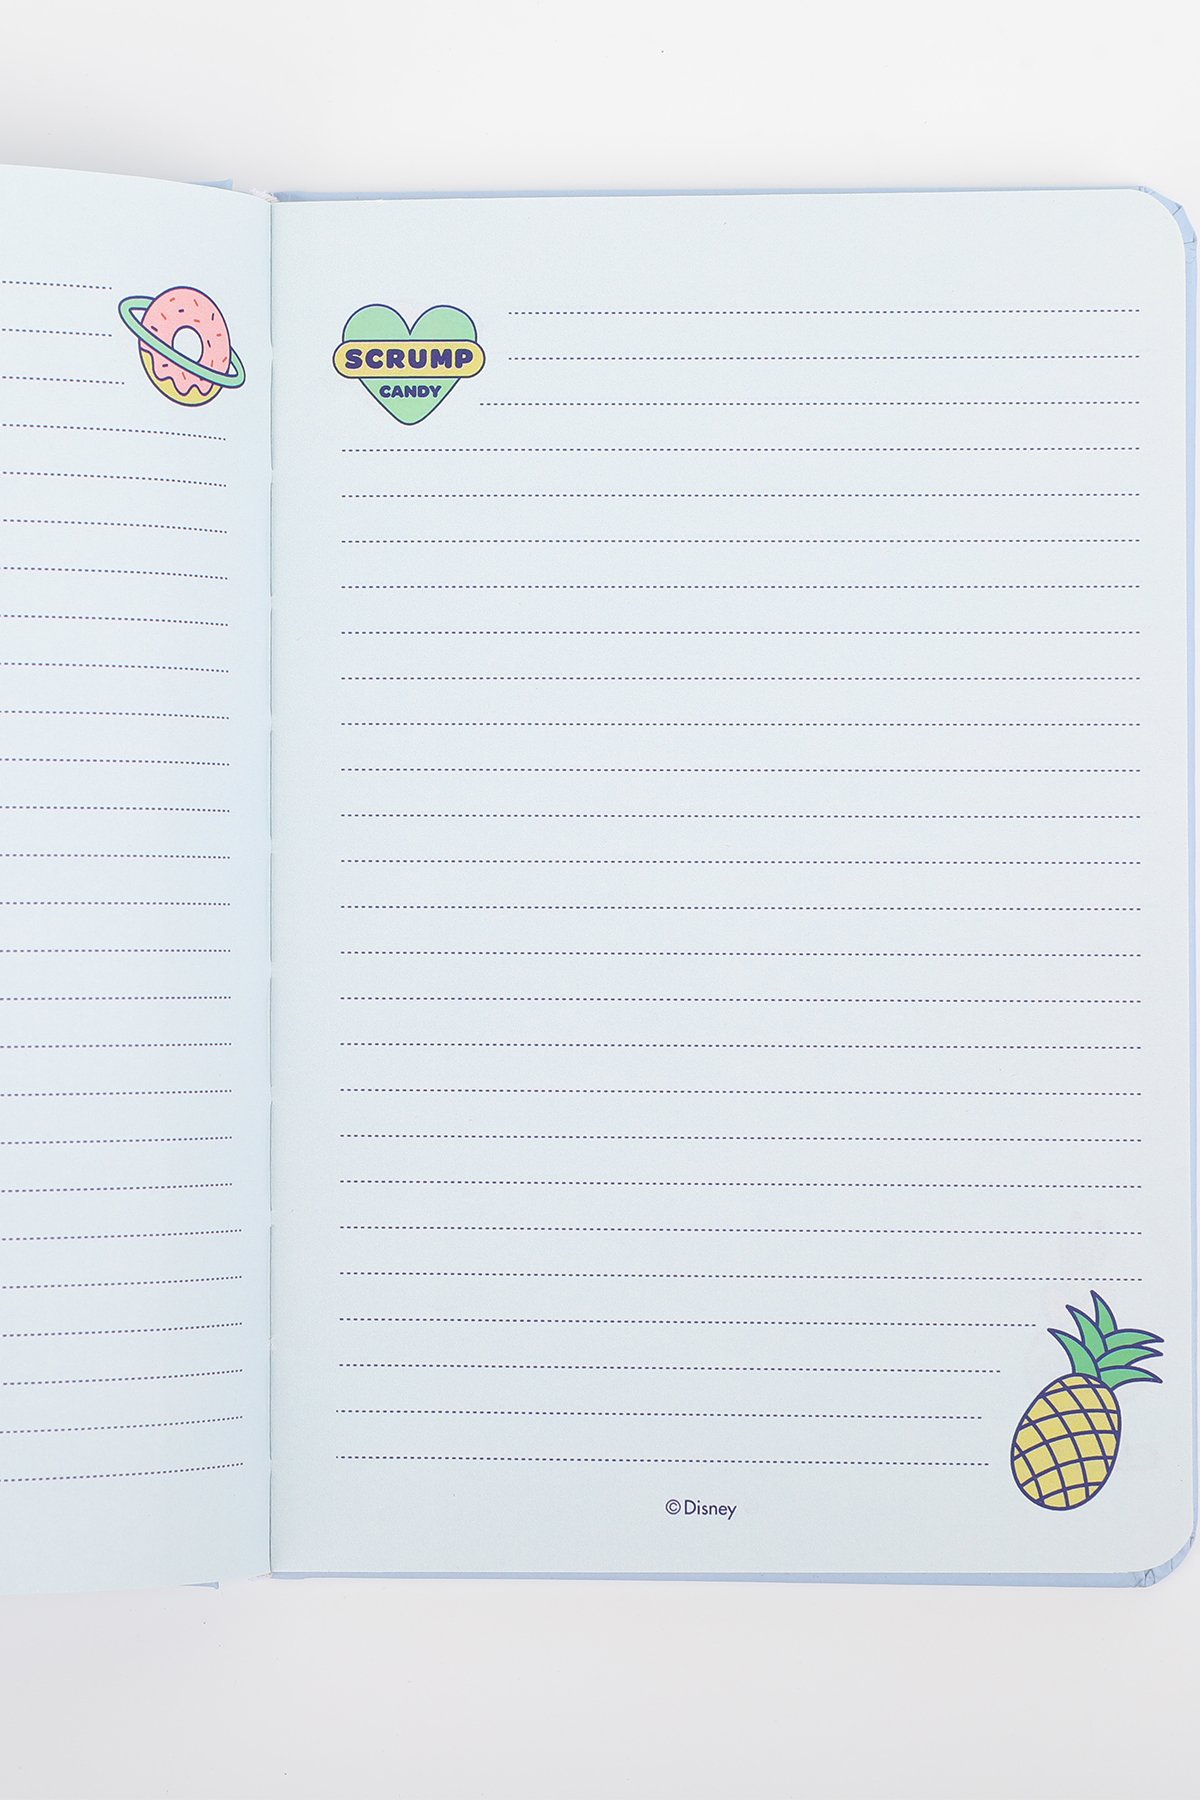 SCRUMP
CANDY
©Disney